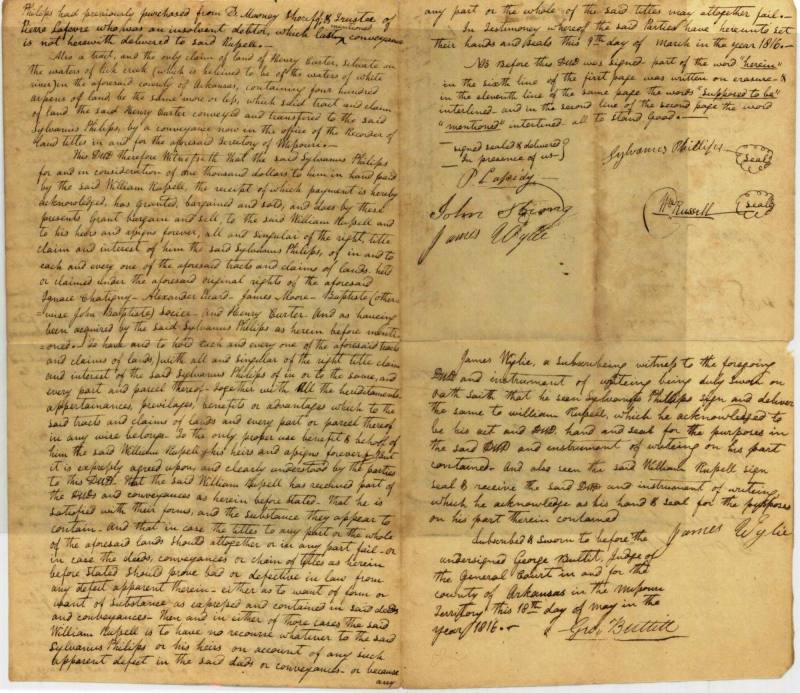 Philips had previously purchased from D. Mooney Sheriff, & Trustee of
Piere Lefevre who was an insolvent debtor, which last mentioned conveyance
is not herewith delivered to said Russell.—
Also a tract, and the only claim of land of Henry Carter, situate on
the waters of lick creek (which is believed to be of the waters of white
river) in the aforesaid county of Arkansas, containing four hundred
arpens of land, be the same more or less, which said tract and claim
of land the said Henry Carter conveyed and transfered to the said
Sylvanus Philips, by a conveyance now in the office of the Recorder of
land titles in and for the aforesaid Territory of Missouri.—
This Deed therefore Witnesseth that the said Sylvanus Philips
for and in consideration of one thousand dollars to him in hand paid
by the said William Russell, the receipt of which payment is hereby
acknowledged, has Granted, bargained and sold, and does by these
presents Grant bargain and sell, to the said William Russell and
to his heirs and assigns forever, all and singular of the right, title
claim and interest of him the said Sylvanus Philips, of in and to
each and every one of the aforesaid tracts and claims of lands, held
or claimed under the aforesaid original rights of the aforesaid
Ignace Chatigny— Alexander Picard— James Moore— Baptiste (other-
=wise John Baptiste) Socier— and Henry Carter. And as haveing
been acquired by the said Sylvanus Philips as herein before menti-
=oned. To have and to hold each and every one of the aforesaid tracts
and claims of lands, with all and singular of the right title claim
and interest of the said Sylvanus Philips of in or to the same, and
every part and parcel thereof— together with all the hereditaments
appertainances, previlages, benefits or advantages which to the
said tracts and claims of lands and every part or parcel thereof
in any wise belongs. To the only proper use benefit & behoof of
him the said William Russell & his heirs and assigns forever. But
it is expressly agreed upon, and clearly understood by the parties
to this Deed. that the said William Russell has received part of
the Deeds and conveyances as herein before stated. That he is
satisfied with their forms, and the substance they appear to
contain. And that in case the titles to any part or the whole
of the aforesaid lands should altogether or in any part fail— or
in case the deeds, conveyances or chain of titles as herein
before Stated should prove bad or defective in law from
any defect apparent therein— either as to want of form or
want of substance as expressed and contained in said deeds
and conveyances— Then and in either of those cases the said
William Russell is to have no recourse whatever to the said
Sylvanus Philips or his heirs on account of any such
apparent defect in the said deeds or conveyances— or because
any
any part or the whole of the said titles may altogether fail.—
In Testimony whereof the said Parties have hereunto set
their hands and Seals this 9th day of March in the year 1816.—
NB Before this Deed was signed part of the word "herein"
in the sixth line of the first page was written on erasure— &
in the eleventh line of the same page the words "supposed to be"
interlined— and in the second line of the second page the word
"mentioned" interlined— all to stand good.—
signed sealed & delivered
In presence of us—
P. Cassidy
John Strong
James Wylie
Sylvanus Phillips (seal)
Wm Russell (seal)
James Wylie, a subscribeing witness to the foregoing
Deed and instrument of writeing being duly sworn on
oath saith that he seen Sylvanus Phillips sign and deliver
the same to William Russell, which he acknowledged to
be his act and Deed. hand and seal for the purposes in
the said Deed and instrument of writeing on his part
contained— And also seen the said William Russell sign
seal & receive the said Deed and instrument of writeing
which he acknowledge as his hand & seal for the purposes
on his part therein contained
James Wylie
Subscribed & Sworn to before the
undersigned George Bullet, Judge of
the General Court in and for the
county of Arkansas in the Missouri
Territory this 18th day of May in the
year 1816.—
Geo. Bullett